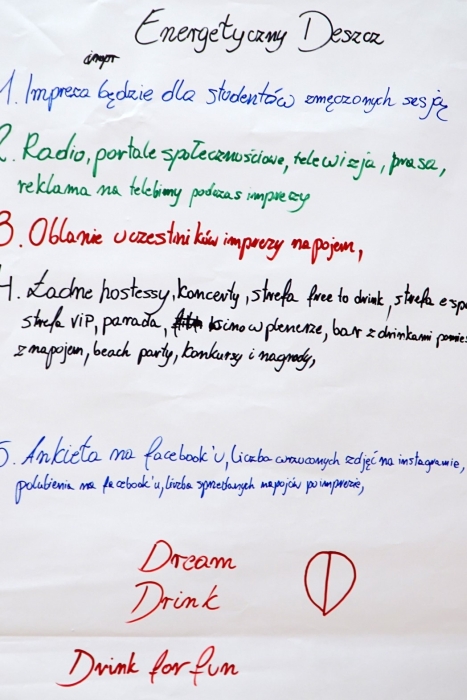 Energetyczny Deszcz
impr
1. Impreza będzie dla studentów zmęczonych sesją
2. Radio, portale społecznościowe, telewizja, prasa,
reklama na telebimy podczas imprezy
3. Oblanie uczestników imprezy napojem,
4. Ładne hostessy, koncerty, strefa free to drink, strefa
strefa VIP, parada, kino w plenerze, bar z drinkami
z napojem, beach party, konkursy i nagrody,
5. Ankieta na facebook'u, liczba wrzuconych zdjęć na instagramie,
polubienia na facebook'u, liczba sprzedanych napojów po imprezie,
Dream
Drink
Drink for fun